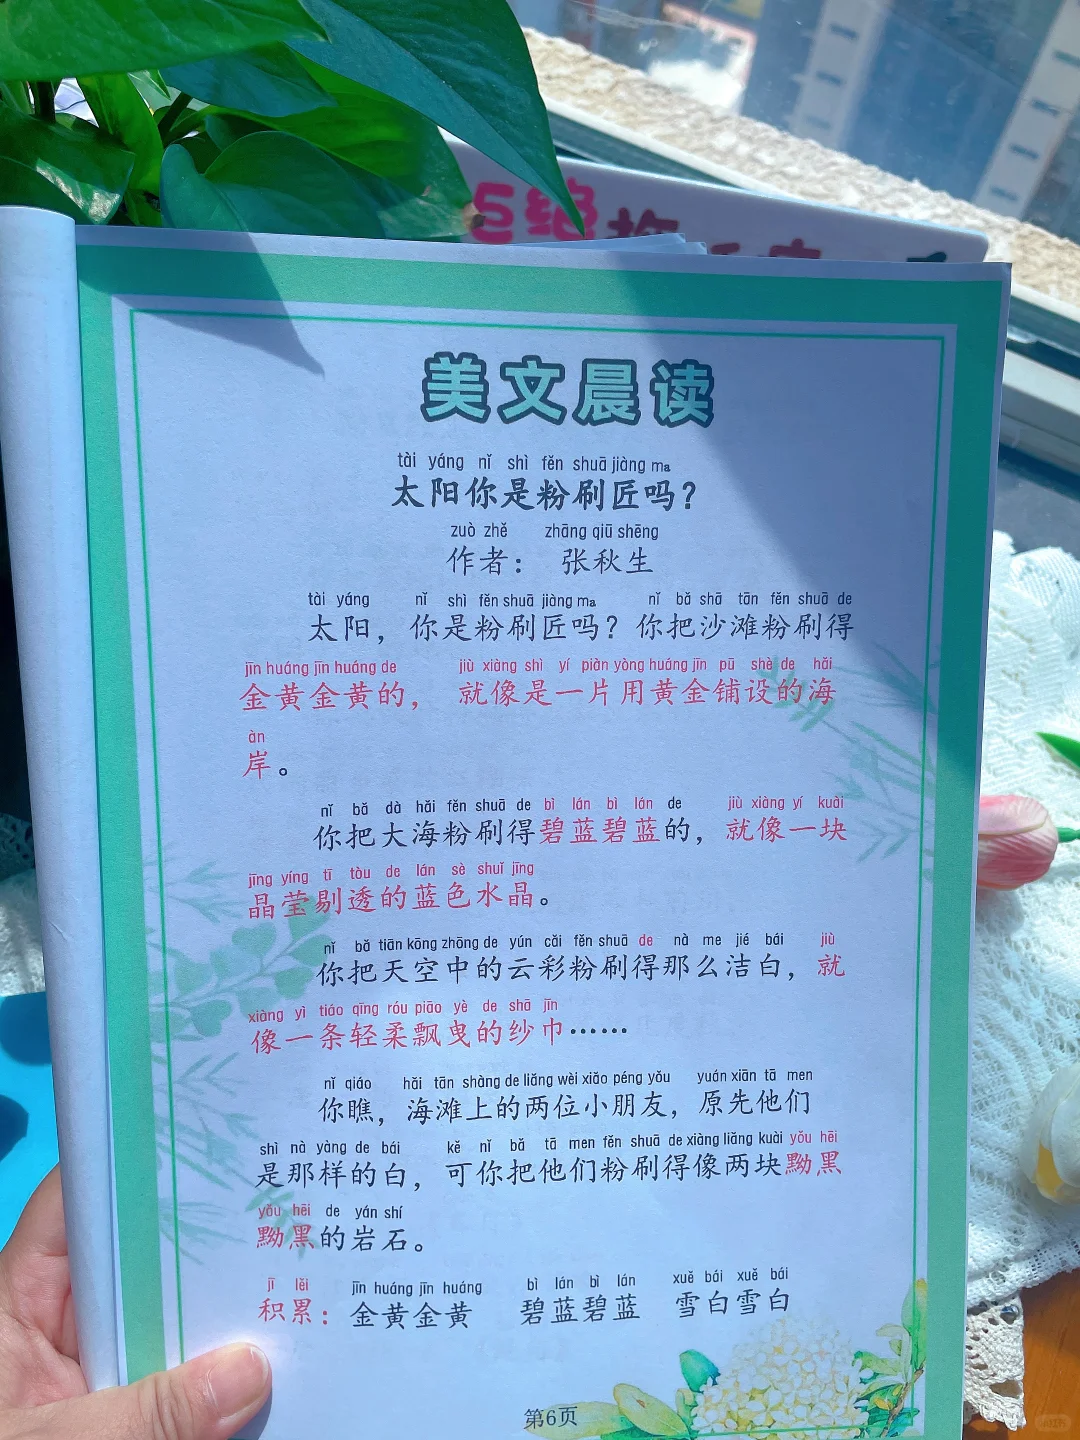 巨绝
美文晨读
tài yáng nǐ shì fěn shuā jiàng ma
太阳你是粉刷匠吗？
zuò zhě zhāng qiū shēng
作者： 张秋生
tài yáng nǐ shì fěn shuā jiàng ma nǐ bǎ shā tān fěn shuā de
太阳，你是粉刷匠吗？你把沙滩粉刷得
jīn huáng jīn huáng de jiù xiàng shì yí piàn yòng huáng jīn pū shè de hǎi
金黄金黄的， 就像是一片用黄金铺设的海
àn
岸。
nǐ bǎ dà hǎi fěn shuā de bì lán bì lán de jiù xiàng yí kuài
你把大海粉刷得碧蓝碧蓝的，就像一块
jīng yíng tī tòu de lán sè shuǐ jīng
晶莹剔透的蓝色水晶。
nǐ bǎ tiān kōng zhōng de yún cǎi fěn shuā de nà me jié bái jiù
你把天空中的云彩粉刷得那么洁白，就
xiàng yì tiáo qīng róu piāo yè de shā jīn
像一条轻柔飘曳的纱巾……
nǐ qiáo hǎi tān shàng de liǎng wèi xiǎo péng yǒu yuán xiān tā men
你瞧，海滩上的两位小朋友，原先他们
shì nà yàng de bái kě nǐ bǎ tā men fěn shuā de xiàng liǎng kuài yǒu hēi
是那样的白，可你把他们粉刷得像两块黝黑
yǒu hēi de yán shí
黝黑的岩石。
jī lěi jīn huáng jīn huáng bì lán bì lán xuě bái xuě bái
积累：金黄金黄 碧蓝碧蓝 雪白雪白
第6页